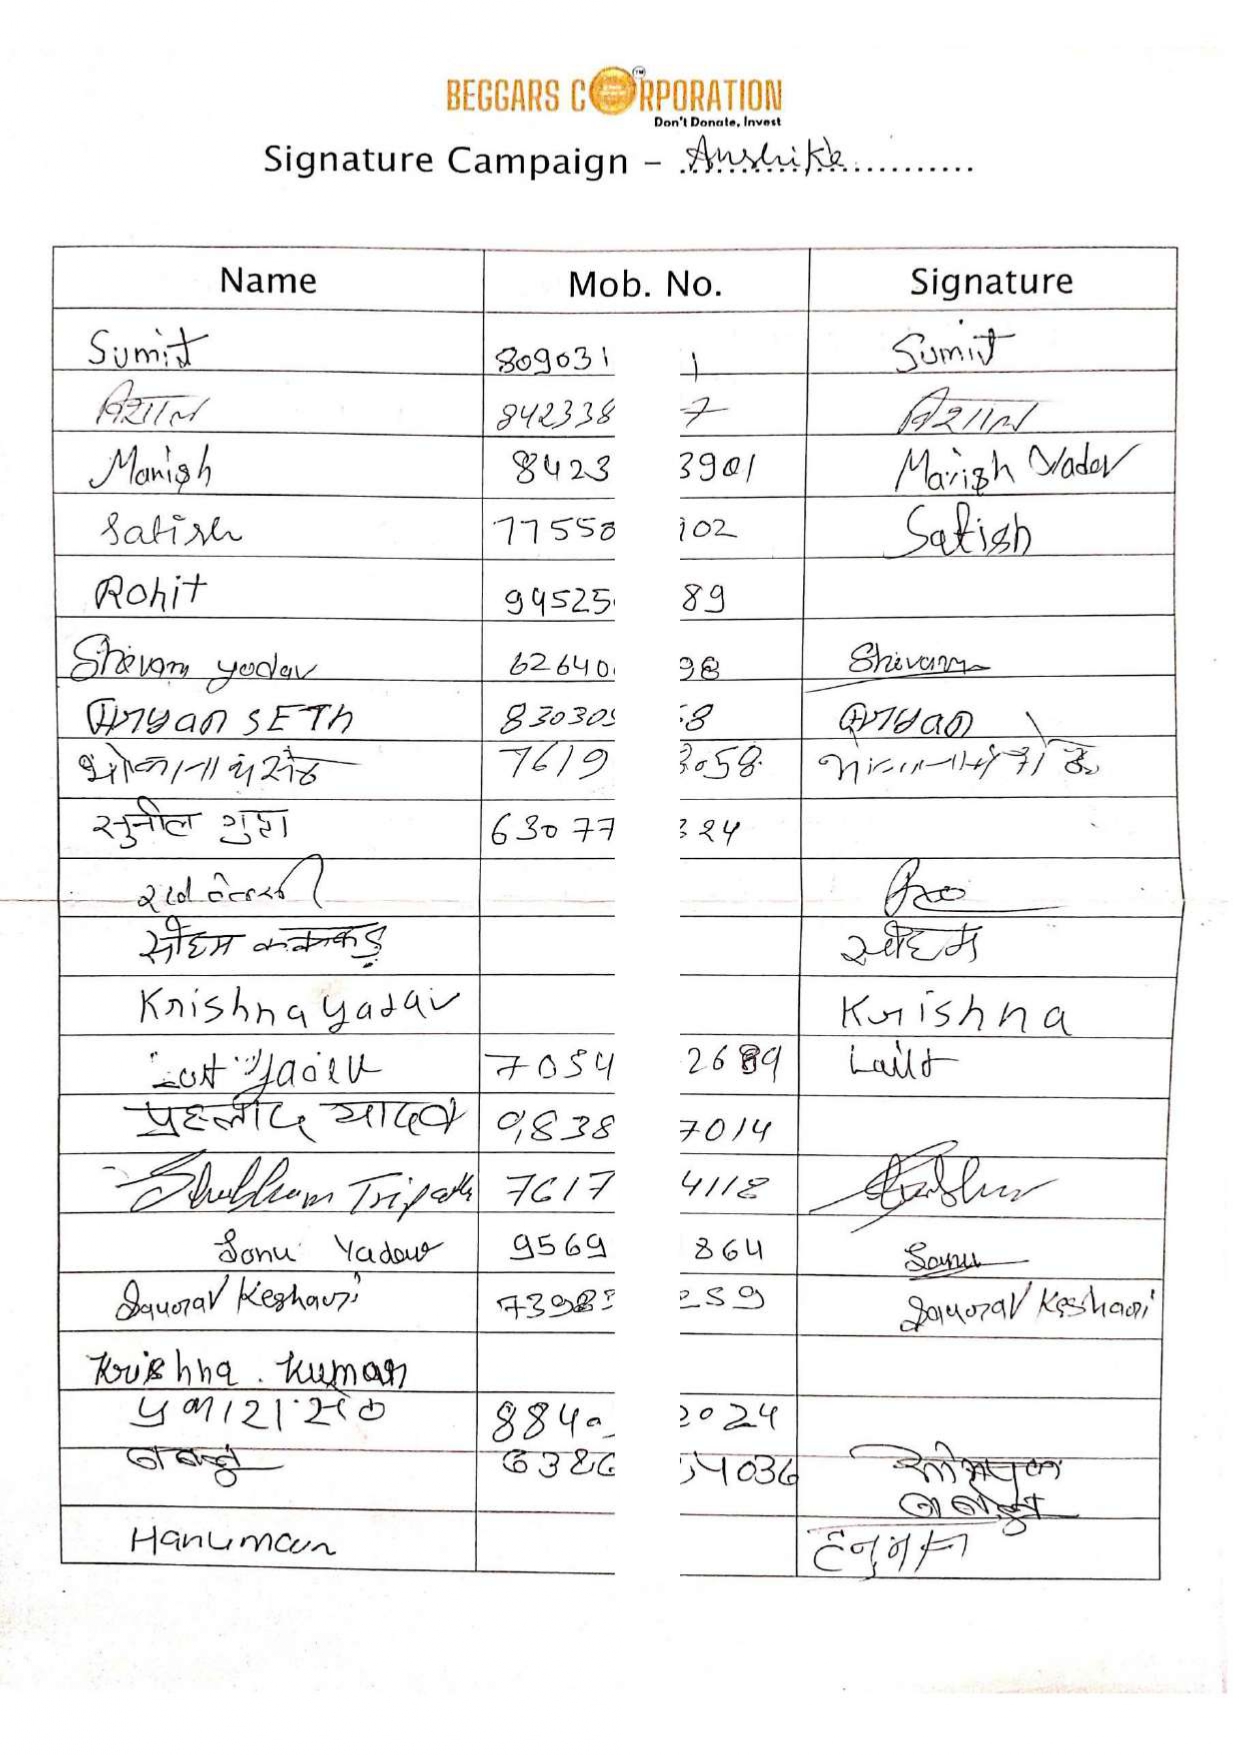 BEGGARS CORPORATION
TM
Don't Donate, Invest
Signature Campaign - Anshika
Name Mob. No. Signature
Sumit 809031 1 Sumit
विशाल 842338 7 विशाल
Manish 8423 3901 Manish Yadav
Satish 77550 102 Satish
Rohit 99525 89
Shivam yadav 62640 98 Shivam
Aryan SETh 830305 58 Aryan
भोलानाथ सेठ 7619 3058 भोलानाथ सेठ
सुनील गुप्ता 63077 324
सोहम कक्कड़ सोहम
Krishna yadav Krishna
Yadav 7054 2689 Lalit
प्रहलाद यादव 9838 7014
Shubham Tripathi 7617 4118
Sonu Yadav 9569 864 Sonu
Saurav Keshari 7398 259 Saurav Keshari
Krishna . Kuman
प्रकाश सेठ 8840 2024
6386 54036
Hanuman हनुमान